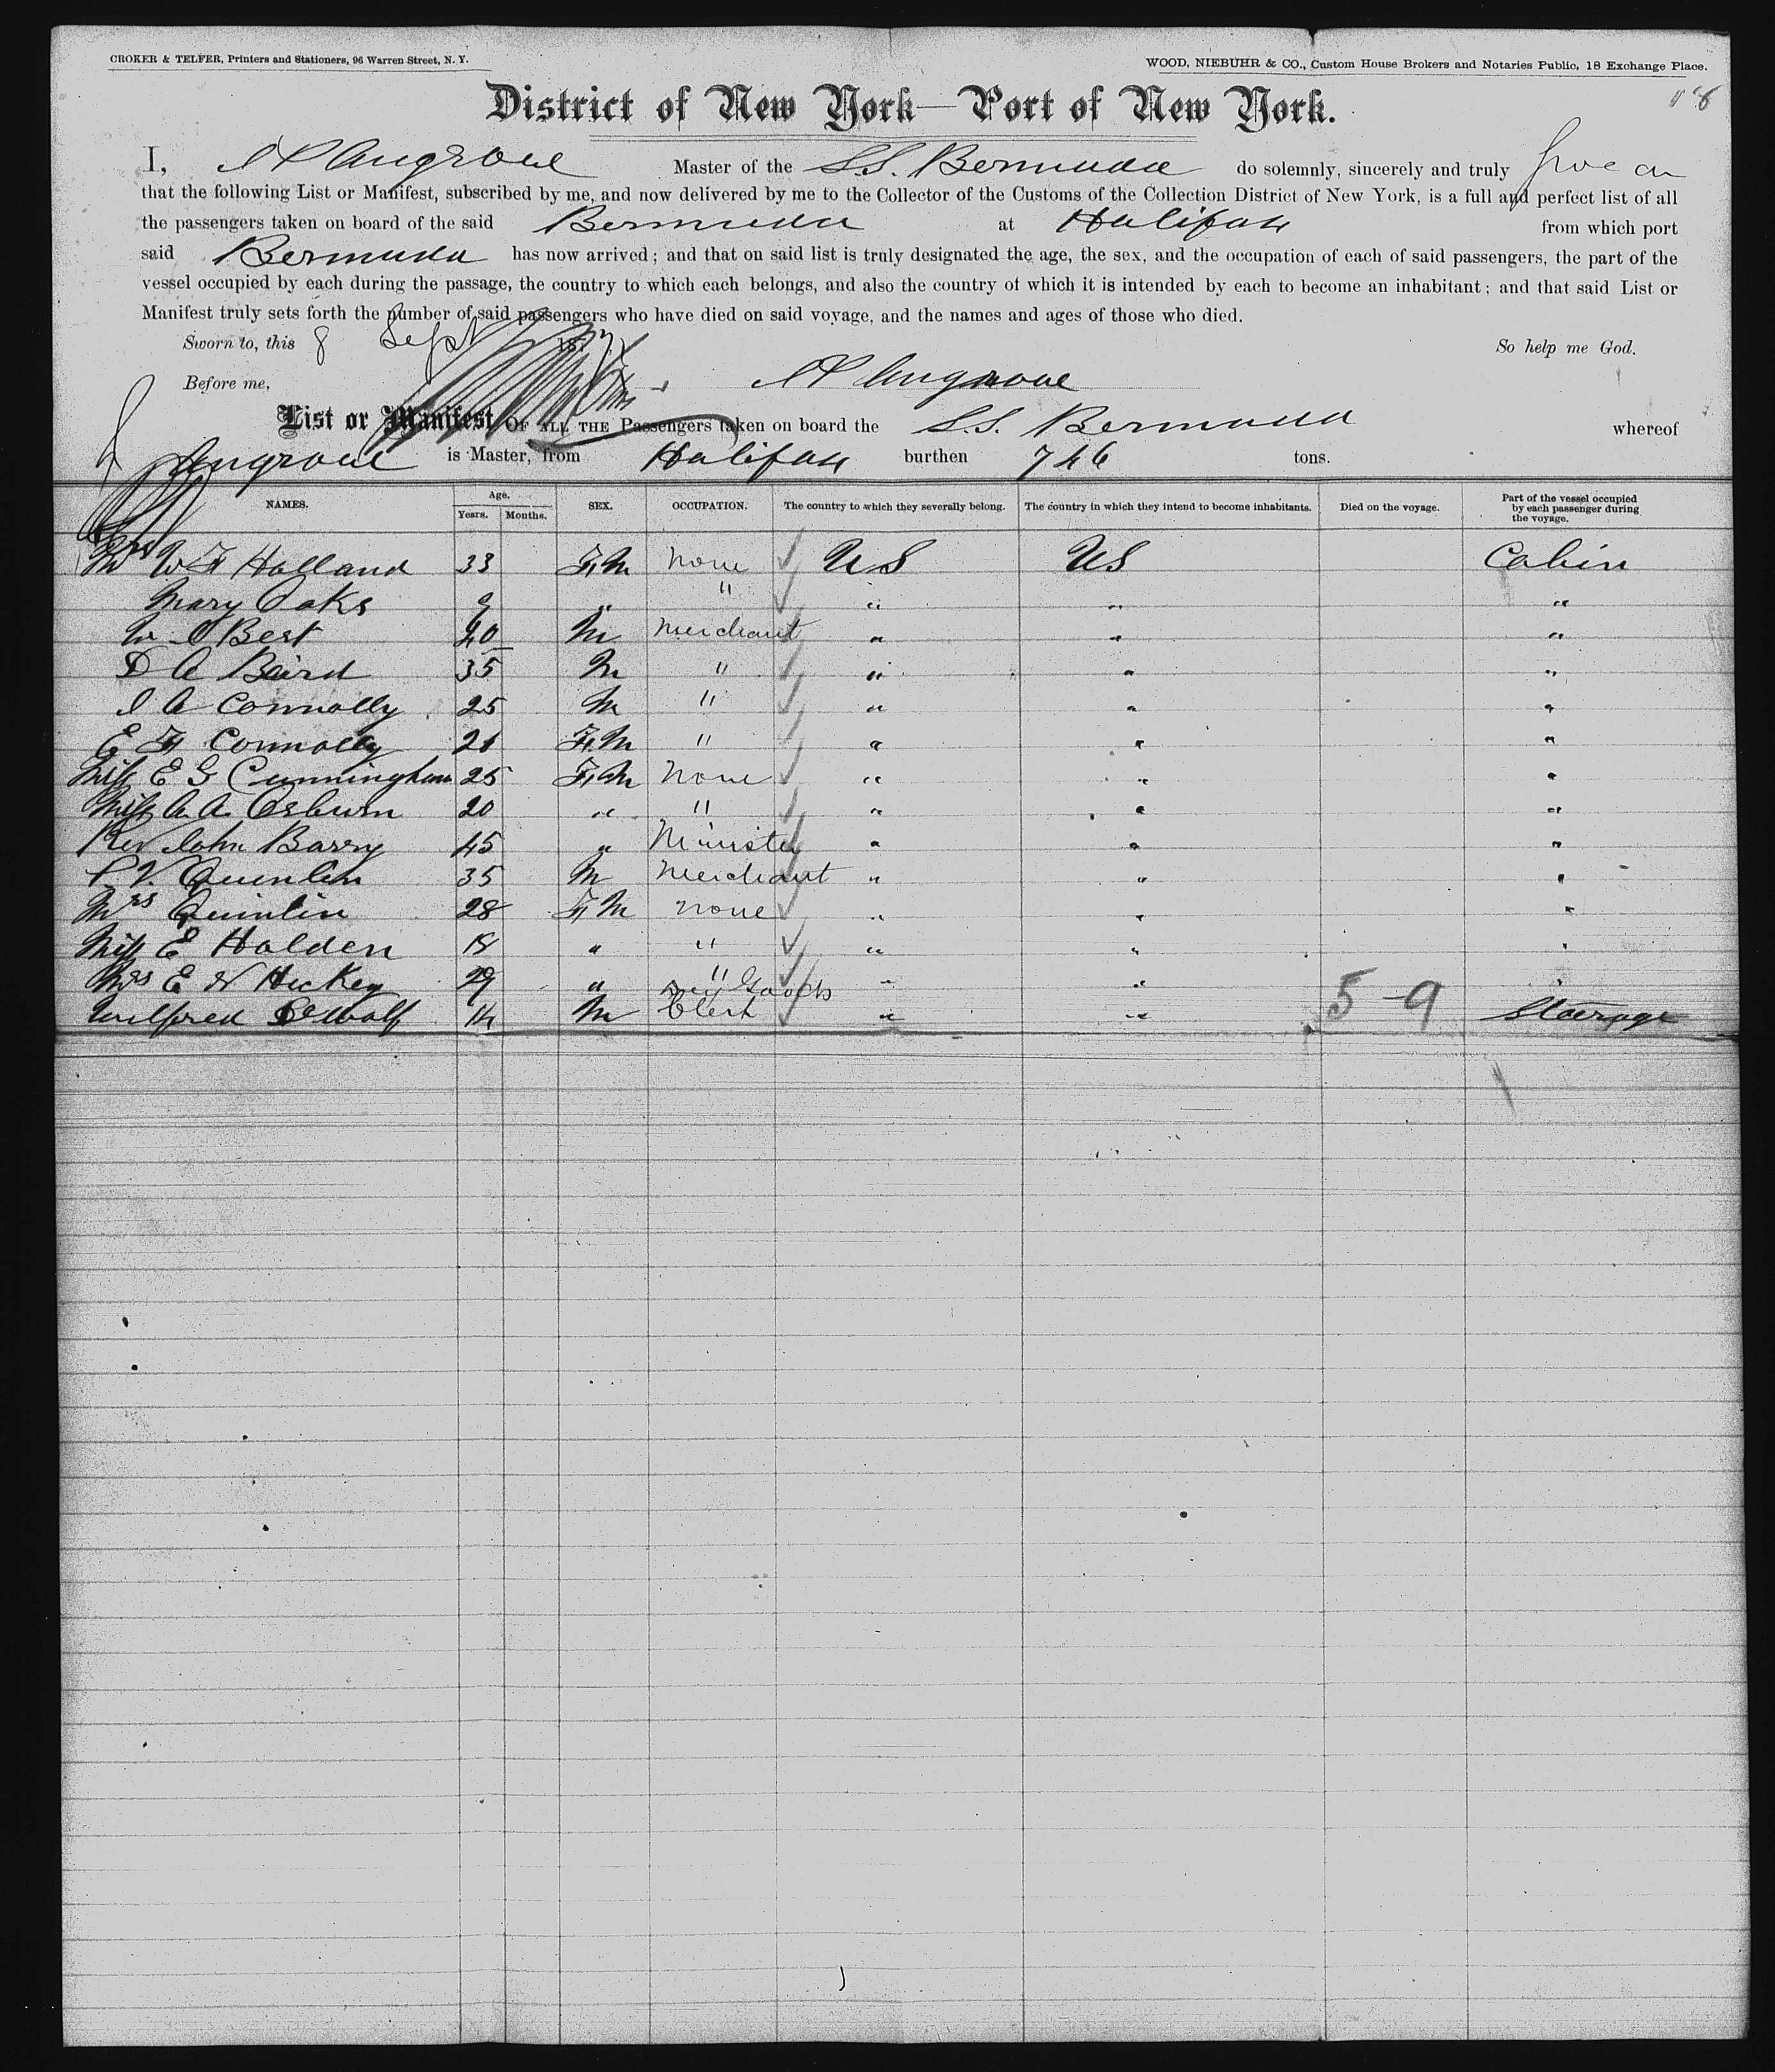 CROKER & TELFER, Printers and Stationers, 96 Warren Street, N. Y. WOOD, NIEBUHR & CO., Custom House Brokers and Notaries Public, 18 Exchange Place.
District of New York—Port of New York.
I, Angrove Master of the S.S. Bermuda do solemnly, sincerely and truly
that the following List or Manifest, subscribed by me, and now delivered by me to the Collector of the Customs of the Collection District of New York, is a full and perfect list of all
the passengers taken on board of the said Bermuda at Halifax from which port
said Bermuda has now arrived; and that on said list is truly designated the age, the sex, and the occupation of each of said passengers, the part of the
vessel occupied by each during the passage, the country to which each belongs, and also the country of which it is intended by each to become an inhabitant; and that said List or
Manifest truly sets forth the number of said passengers who have died on said voyage, and the names and ages of those who died.
Sworn to, this 8 Sept 187 So help me God.
Before me, Angrove
List or Manifest OF ALL THE Passengers taken on board the S.S. Bermuda whereof
Angrove is Master, from Halifax burthen 746 tons.
NAMES. Age. Years. Months. SEX. OCCUPATION. The country to which they severally belong. The country in which they intend to become inhabitants. Died on the voyage. Part of the vessel occupied by each passenger during the voyage.
Mrs W F Holland 33 F.M None US US Cabin
Mary Oaks 9 " " " " "
W Best 40 M Merchant " " "
D A Baird 35 M " " " "
J A Connolly 25 M " " " "
E F Connolly 21 F.M " " " "
Miss E G Cunningham 25 F.M None " " "
Miss A A Osburn 20 " " " " "
Rev John Barry 45 " Minister " " "
P V. Quinlin 35 M Merchant " " "
Mrs Quinlin 28 F M none " " "
Miss E Holden 18 " " " " "
Mrs E N Hickey 29 " " " " "
Wilfred DeWolf 14 M Dry Goods Clerk " " 5-9 Steerage